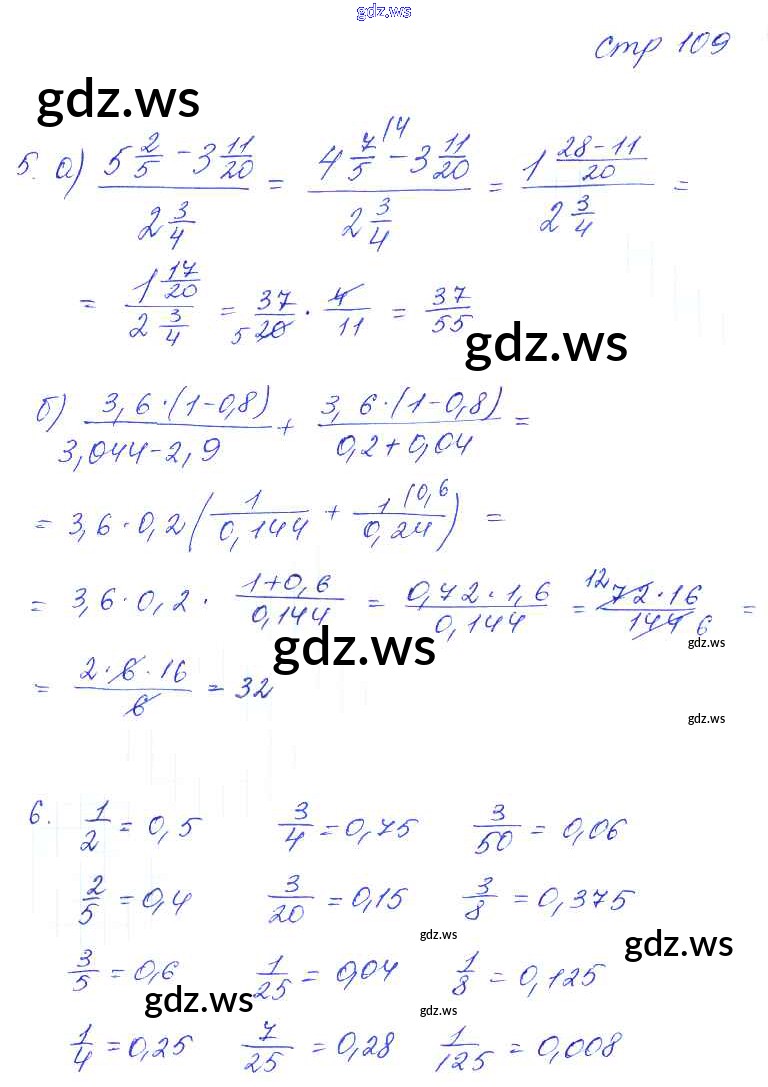 gdz.ws
стр 109
gdz.ws
5. а) (5 2/5 - 3 11/20) / (2 3/4) = (4 7/5 /4 - 3 11/20) / (2 3/4) = (1 (28-11)/20) / (2 3/4) =
= (1 17/20) / (2 3/4) = 37/20 5 · 4/11 = 37/55
gdz.ws
б) 3,6·(1-0,8) / 3,044-2,9 + 3,6·(1-0,8) / 0,2+0,04 =
= 3,6·0,2 (1/0,144 + 1/0,24 /0,6) =
= 3,6·0,2 · (1+0,6)/0,144 = 0,72·1,6 / 0,144 = 12 72·16 / 144 6 =
gdz.ws
gdz.ws
= 2·6·16 / 6 = 32
gdz.ws
6. 1/2 = 0,5 3/4 = 0,75 3/50 = 0,06
2/5 = 0,4 3/20 = 0,15 3/8 = 0,375
gdz.ws
gdz.ws
3/5 = 0,6 1/25 = 0,04 1/8 = 0,125
gdz.ws
gdz.ws
1/4 = 0,25 7/25 = 0,28 1/125 = 0,008